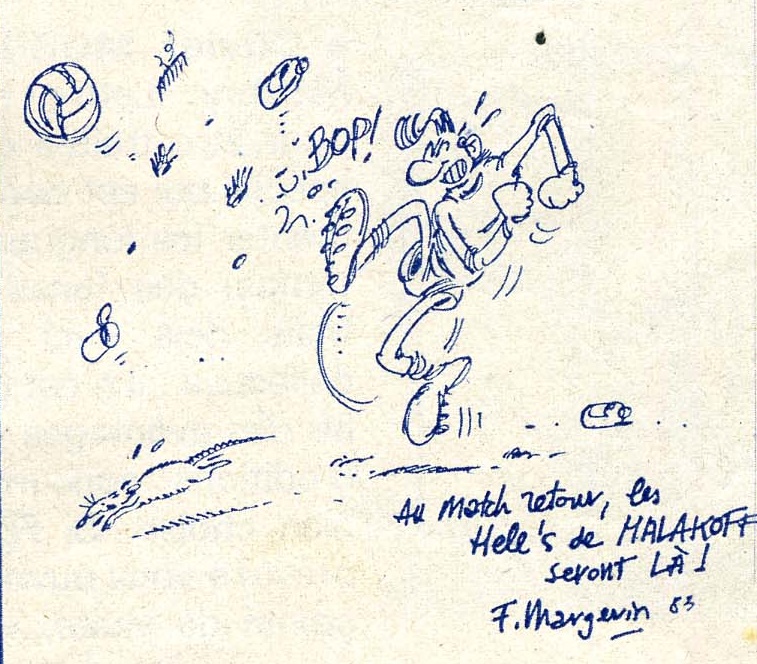 BOP!
Au Match retour, les
Hele's de MALAKOFF
seront LÀ!
F. Margerin 83